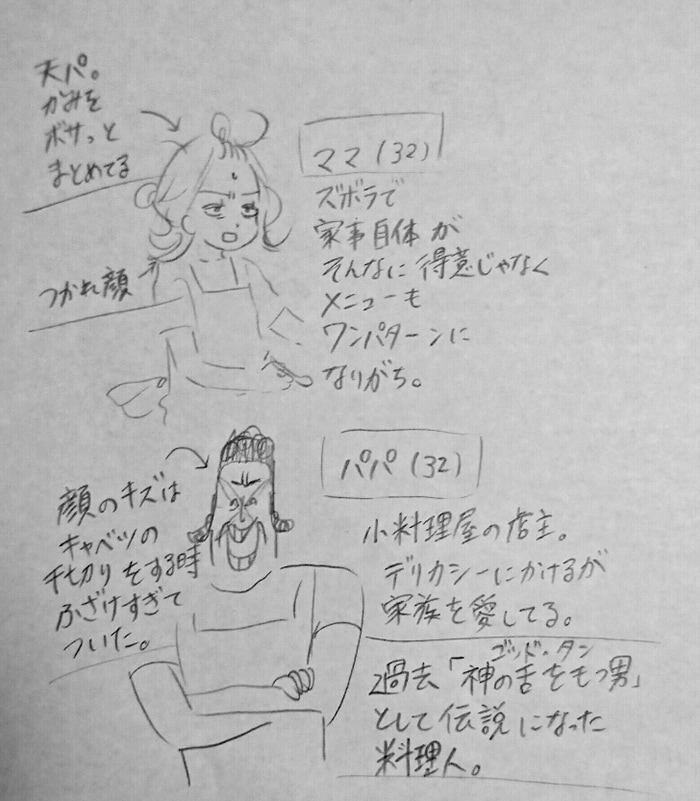 天パ。
かみを
ボサっと
まとめてる
つかれ顔
ママ(32)
ズボラで
家事自体が
そんなに得意じゃなく
メニューも
ワンパターンに
なりがち。
顔のキズは
キャベツの
千切りをする時
ふざけすぎて
ついた。
パパ(32)
小料理屋の店主。
デリカシーにかけるが
家族を愛してる。
ゴッド・タン
過去「神の舌をもつ男」
として伝説になった
料理人。